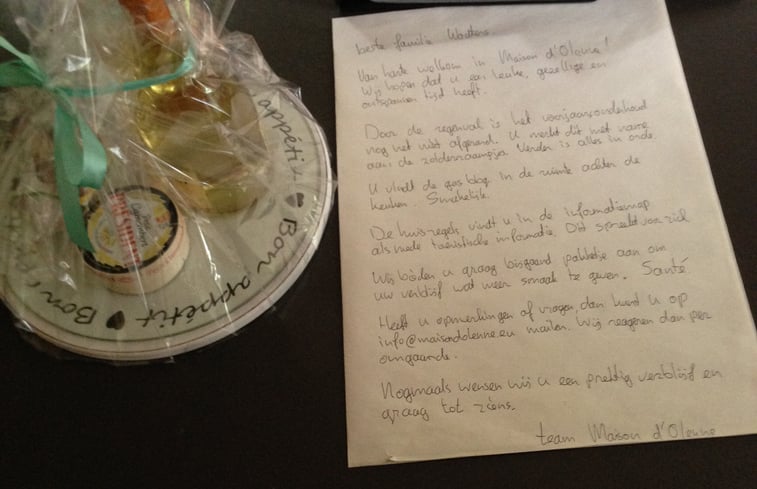 beste familie Wouters.
Van harte welkom in Maison d'Olonne!
Wij hopen dat u een leuke, gezellige en
ontspannen tijd heeft.
Door de regenval is het voorjaarsonderhoud
nog niet afgerond. U merkt dit met name
aan de zolderraampje. Verder is alles in orde.
U vindt de gas bbq. In de ruimte achter de
keuken. Smakelijk.
De huisregels vindt u in de informatiemap
als mede toeristische informatie. Dit spreekt voor zich
Wij bieden u graag bijgaand pakketje aan om
uw verblijf wat meer smaak te geven. Santé
Heeft u opmerkingen of vragen, dan kunt u op
info@maisondolonne.eu mailen. Wij reageren dan per
omgaande.
Nogmaals wensen wij u een prettig verblijf en
graag tot ziens.
team Maison d'Olonne
appétit ♥ Bon appétit ♥ Bon